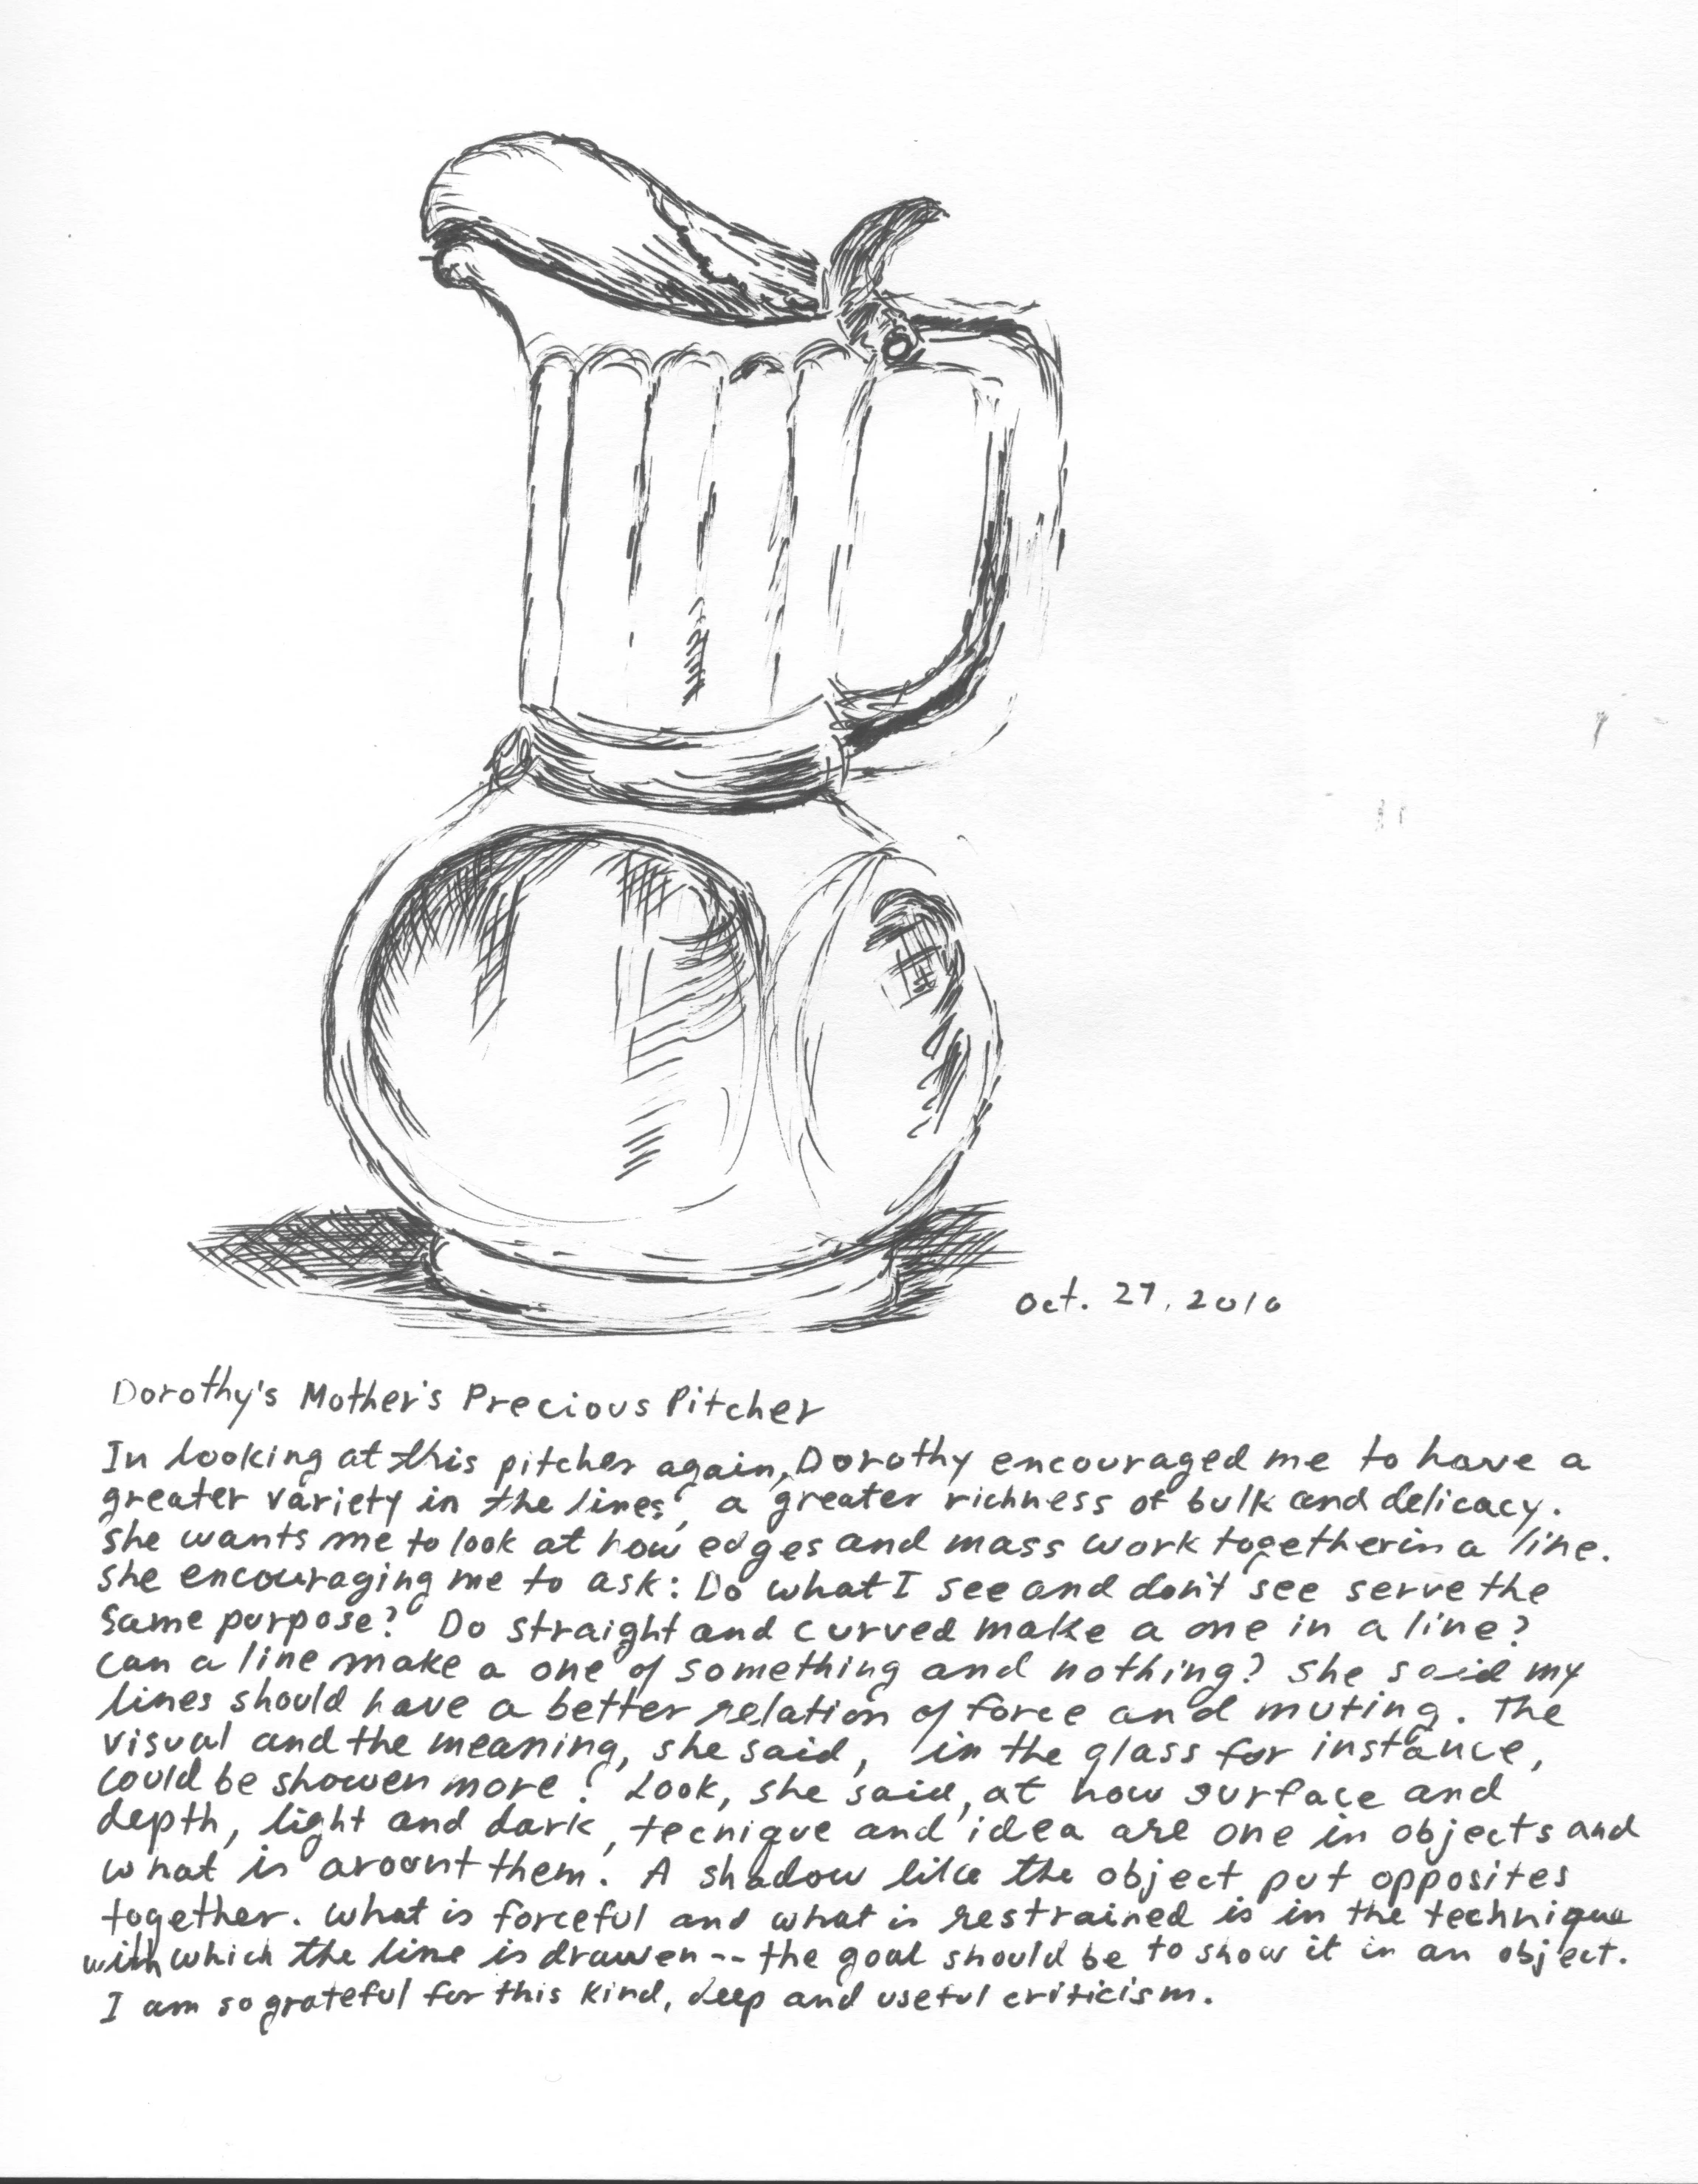 Oct. 27, 2010
Dorothy's Mother's Precious Pitcher
In looking at this pitcher again, Dorothy encouraged me to have a
greater variety in the lines, a greater richness of bulk and delicacy.
She wants me to look at how edges and mass work together in a line.
She encouraging me to ask: Do what I see and don't see serve the
same purpose? Do straight and curved make a one in a line?
Can a line make a one of something and nothing? She said my
lines should have a better relation of force and muting. The
visual and the meaning, she said, in the glass for instance,
could be showen more. Look, she said, at how surface and
depth, light and dark, tecnique and idea are one in objects and
what is arount them. A shadow like the object put opposites
together. What is forceful and what is restrained is in the technique
with which the line is drawen -- the goal should be to show it in an object.
I am so grateful for this kind, deep and useful criticism.